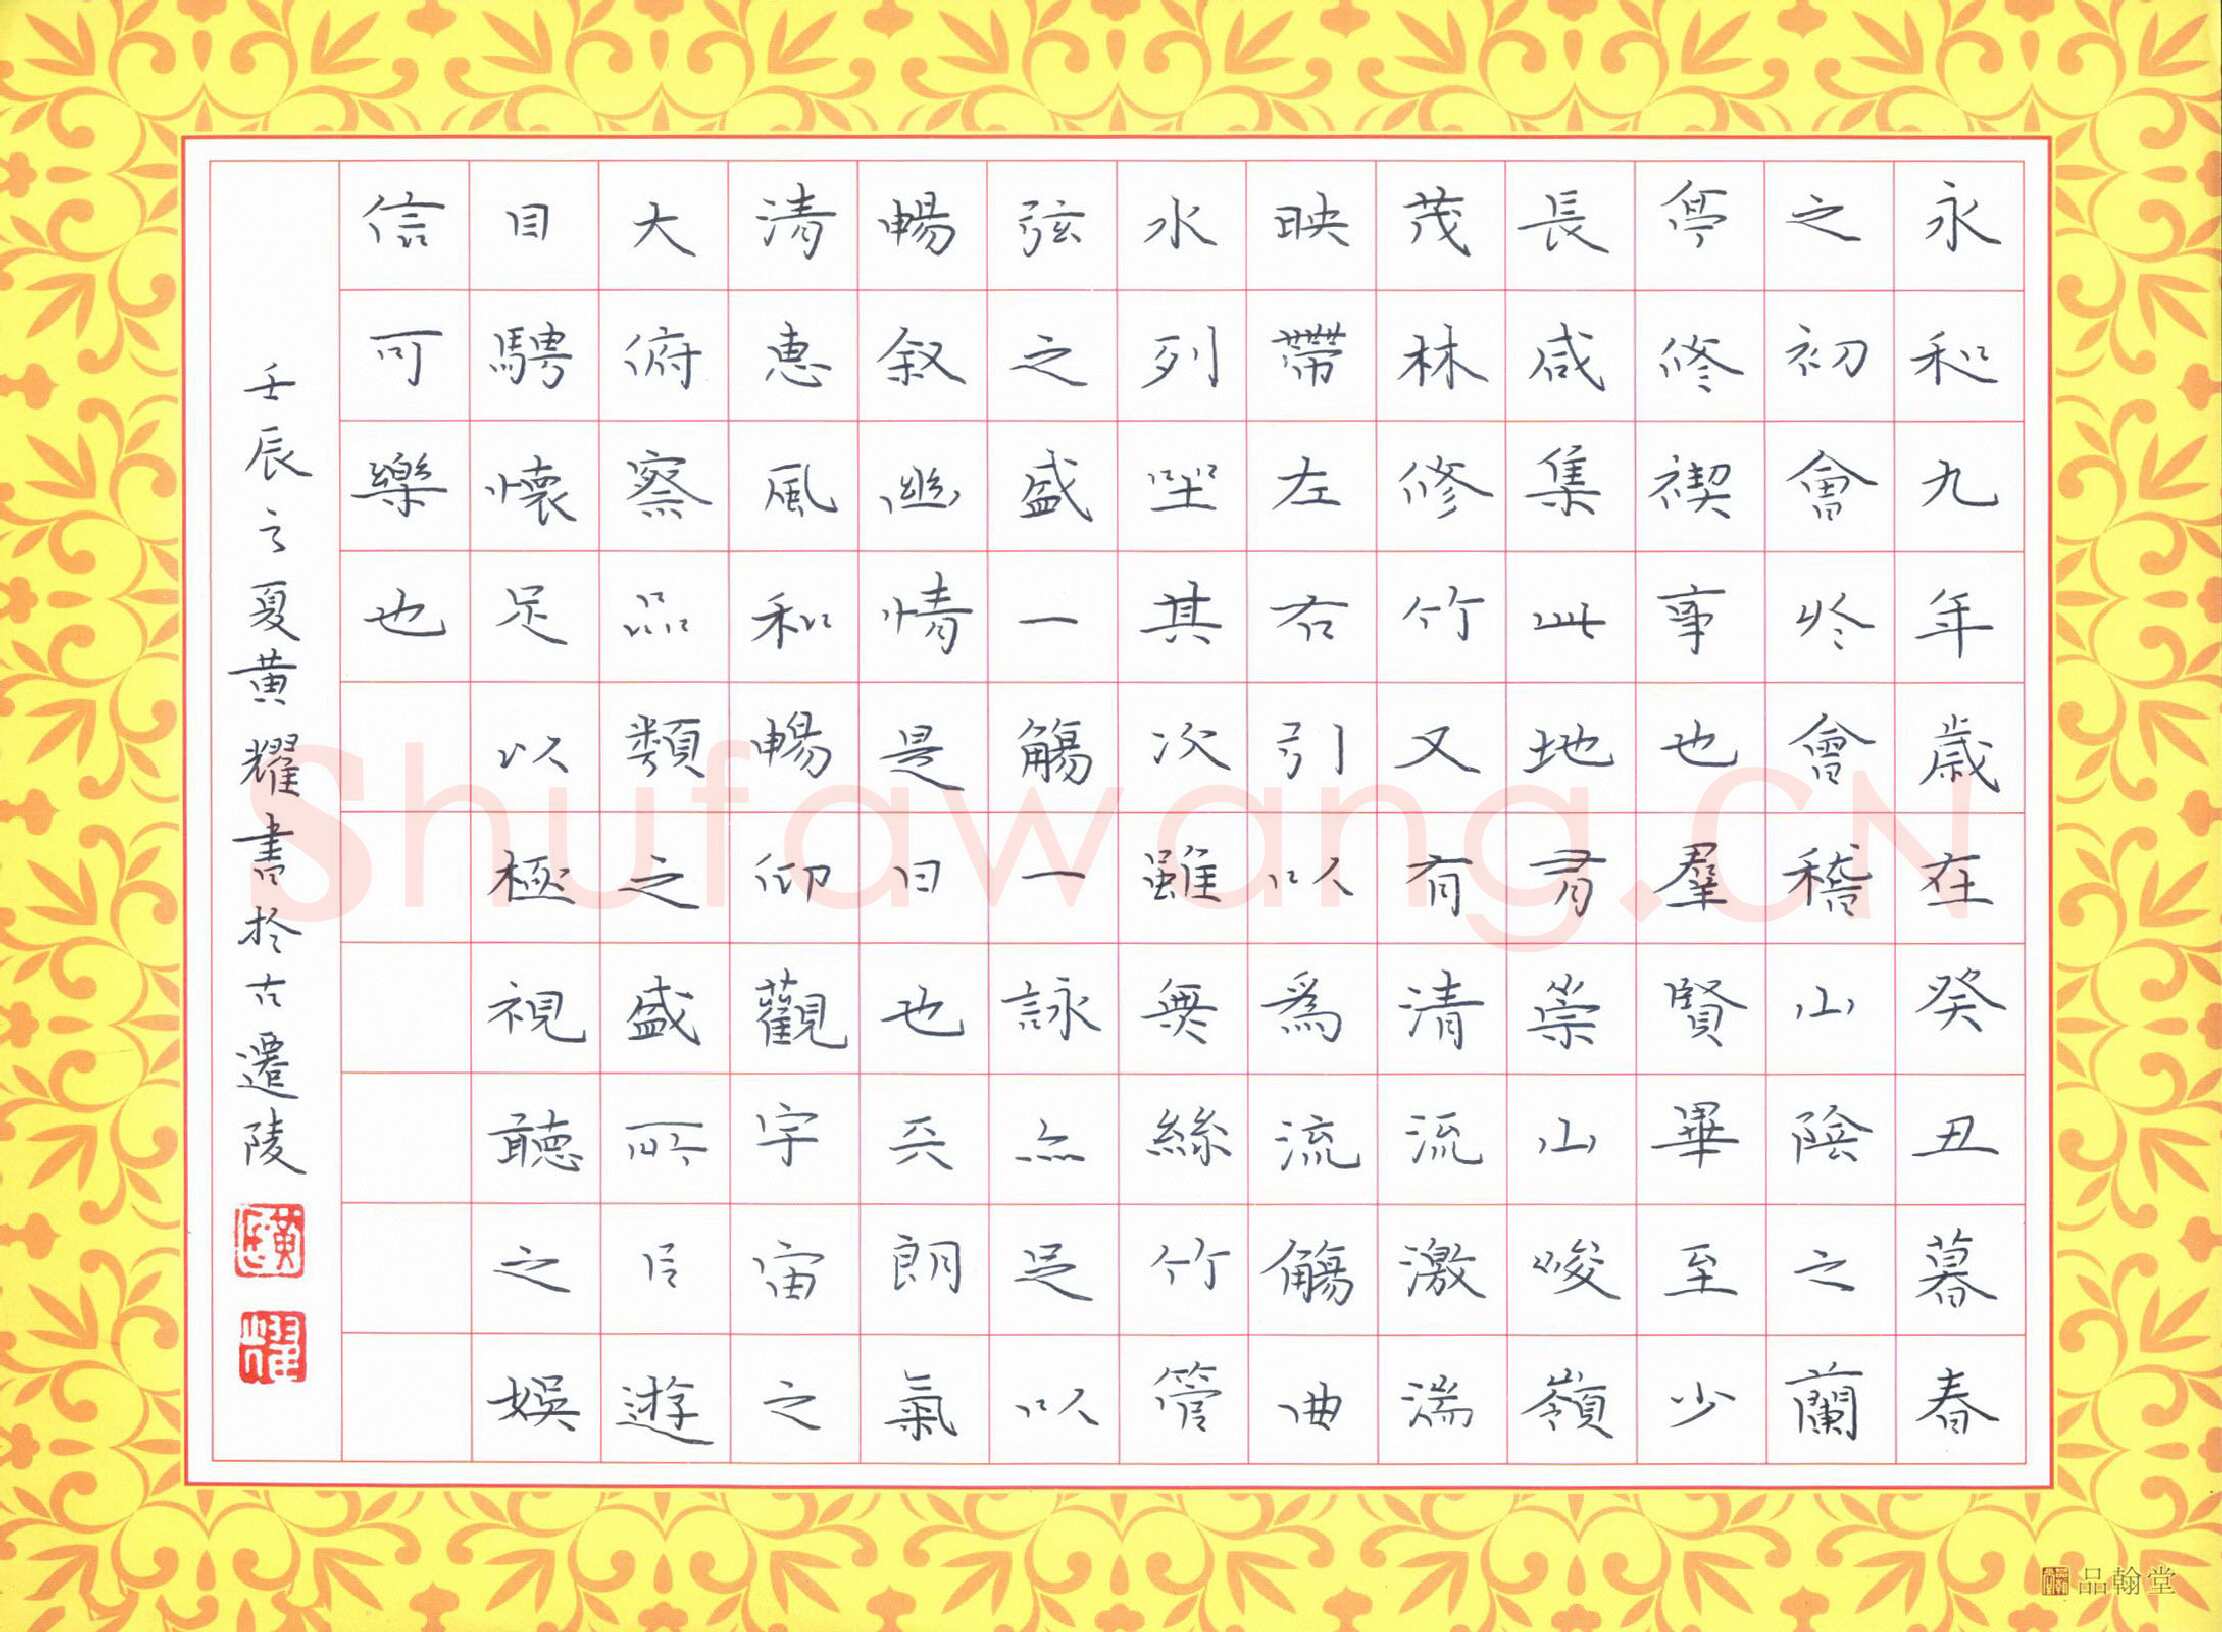 永和九年歲在癸丑暮春
之初會於會稽山陰之蘭
亭修禊事也羣賢畢至少
長咸集此地有崇山峻嶺
茂林修竹又有清流激湍
映帶左右引以爲流觴曲
水列坐其次雖無絲竹管
弦之盛一觴一詠亦足以
暢叙幽情是日也天朗氣
清惠風和暢仰觀宇宙之
大俯察品類之盛所以遊
目騁懷足以極視聽之娛
信可樂也
壬辰之夏黄耀書於古遷陵
耀
品翰堂
Shufawang.CN